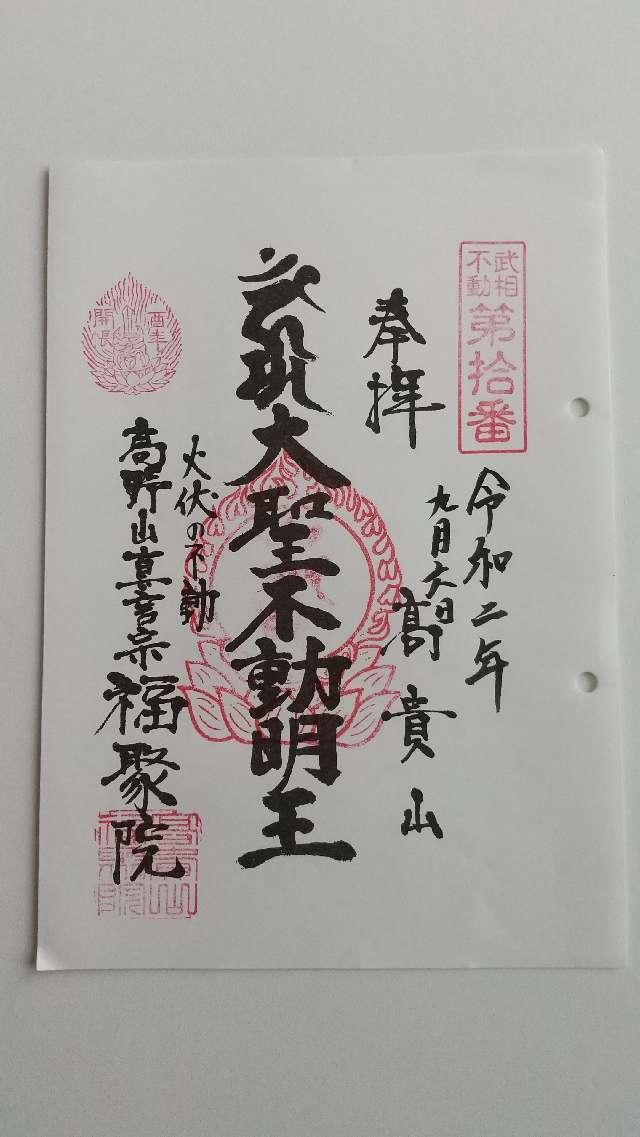 武相
不動
第拾番
令和二年
九月六日
奉拝
高貴山
大聖不動明王
火伏の不動
高野山真言宗
福聚院
酉年
開長